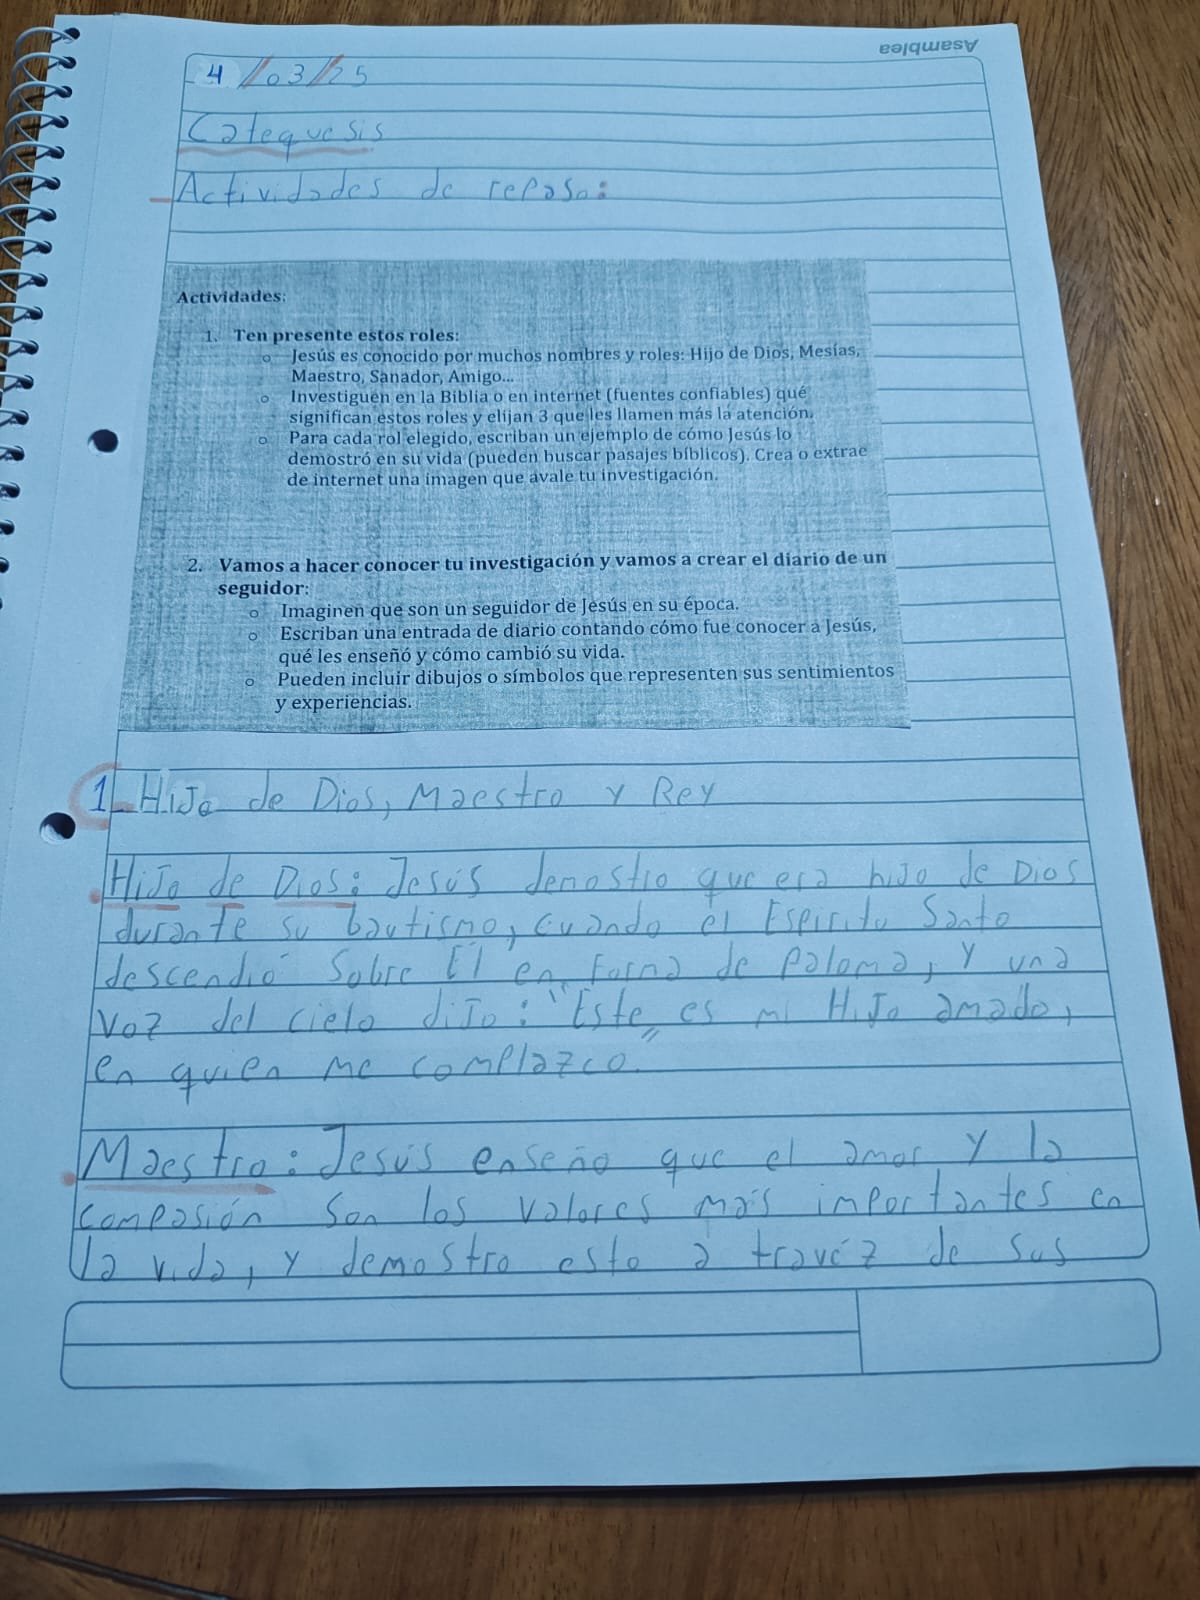 Asamblea
4/03/25
Catequesis
Actividades de repaso:
Actividades:
1. Ten presente estos roles:
o Jesús es conocido por muchos nombres y roles: Hijo de Dios, Mesías,
Maestro, Sanador, Amigo...
o Investiguen en la Biblia o en internet (fuentes confiables) qué
significan estos roles y elijan 3 que les llamen más la atención.
o Para cada rol elegido, escriban un ejemplo de cómo Jesús lo
demostró en su vida (pueden buscar pasajes bíblicos). Crea o extrae
de internet una imagen que avale tu investigación.
2. Vamos a hacer conocer tu investigación y vamos a crear el diario de un
seguidor:
o Imaginen que son un seguidor de Jesús en su época.
o Escriban una entrada de diario contando cómo fue conocer a Jesús,
qué les enseñó y cómo cambió su vida.
o Pueden incluir dibujos o símbolos que representen sus sentimientos
y experiencias.
1_ Hijo de Dios, Maestro y Rey
Hijo de Dios: Jesús demostro que era hijo de Dios
durante su bautismo, cuando el Espiritu Santo
descendió sobre Él en forma de paloma, y una
voz del cielo dijo: "Este es mi Hijo amado,
en quien me complazco."
Maestro: Jesús enseño que el amor y la
compasión son los valores más importantes en
la vida, y demostro esto a travéz de sus